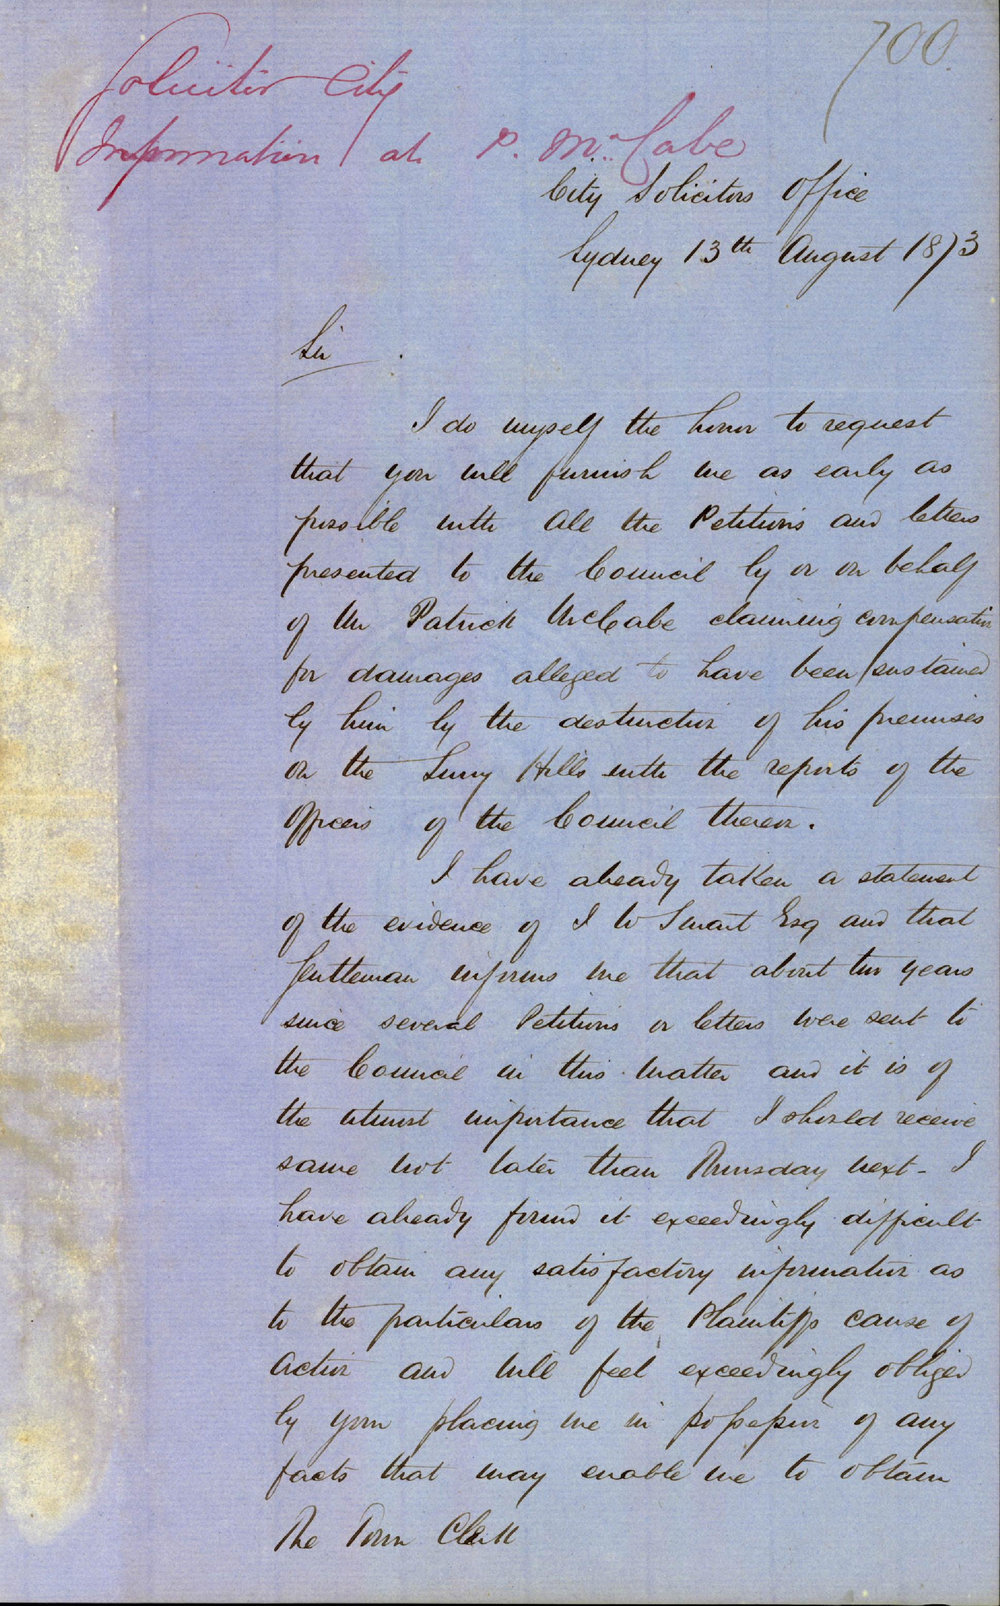 700
Solicitor City
Information ab P. McCabe
City Solicitors Office
Sydney 13th August 1873
Sir
I do myself the honor to request
that you will furnish me as early as
possible with all the Petitions and letters
presented to the Council by or on behalf
of Mr Patrick McCabe claiming compensation
for damages alleged to have been sustained
by him by the destruction of his premises
on the Surry Hills with the reports of the
Officers of the Council thereon.
I have already taken a statement
of the evidence of T W Smart Esq and that
Gentleman informs me that about two years
since several Petitions or letters were sent to
the Council in this matter and it is of
the utmost importance that I should receive
same not later than Thursday next - I
have already found it exceedingly difficult
to obtain any satisfactory information as
to the particulars of the Plaintiffs cause of
action and will feel exceedingly obliged
by your placing me in possession of any
facts that may enable me to obtain
The Town Clerk